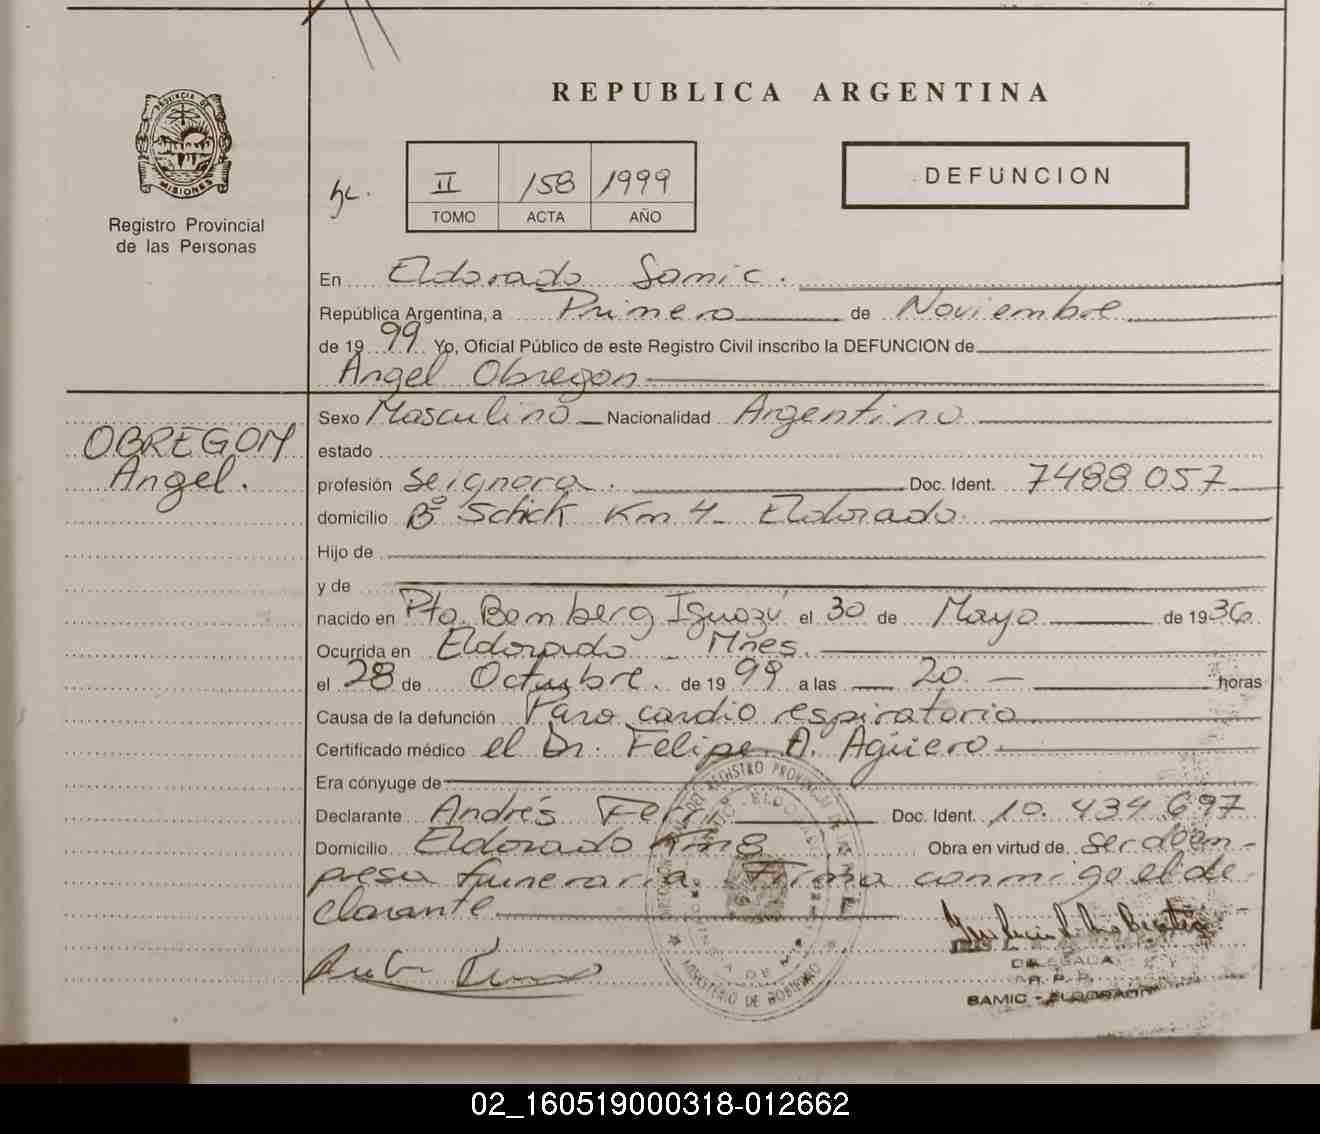 REPUBLICA ARGENTINA
PROVINCIA DE
MISIONES
Registro Provincial
de las Personas
II 158 1999
TOMO ACTA AÑO
DEFUNCION
En Eldorado Samic.
República Argentina, a Primero de Noviembre
de 1999 Yo, Oficial Público de este Registro Civil inscribo la DEFUNCION de
Angel Obregon
OBREGON
Angel.
Sexo Masculino Nacionalidad Argentino
estado
profesión Seignora. Doc. Ident. 7488057
domicilio Bº Schick Km 4- Eldorado
Hijo de
y de
nacido en Pto Bemberg Iguazú el 30 de Mayo de 1936
Ocurrida en Eldorado - Mnes.
el 28 de Octubre. de 1999 a las 20 - horas
Causa de la defunción Paro cardio respiratorio
Certificado médico el Dr. Felipe A. Agüero
Era cónyuge de
Declarante Andrés Doc. Ident. 10.434.697
Domicilio Eldorado Km 8 Obra en virtud de ser de em-
presa funeraria. Firma conmigo el de
clarante
REGISTRO PROVINCIAL DE
MINISTERIO DE GOBIERNO
DELEGADA
R. P. P.
SAMIC - ELDORADO
02_160519000318-012662